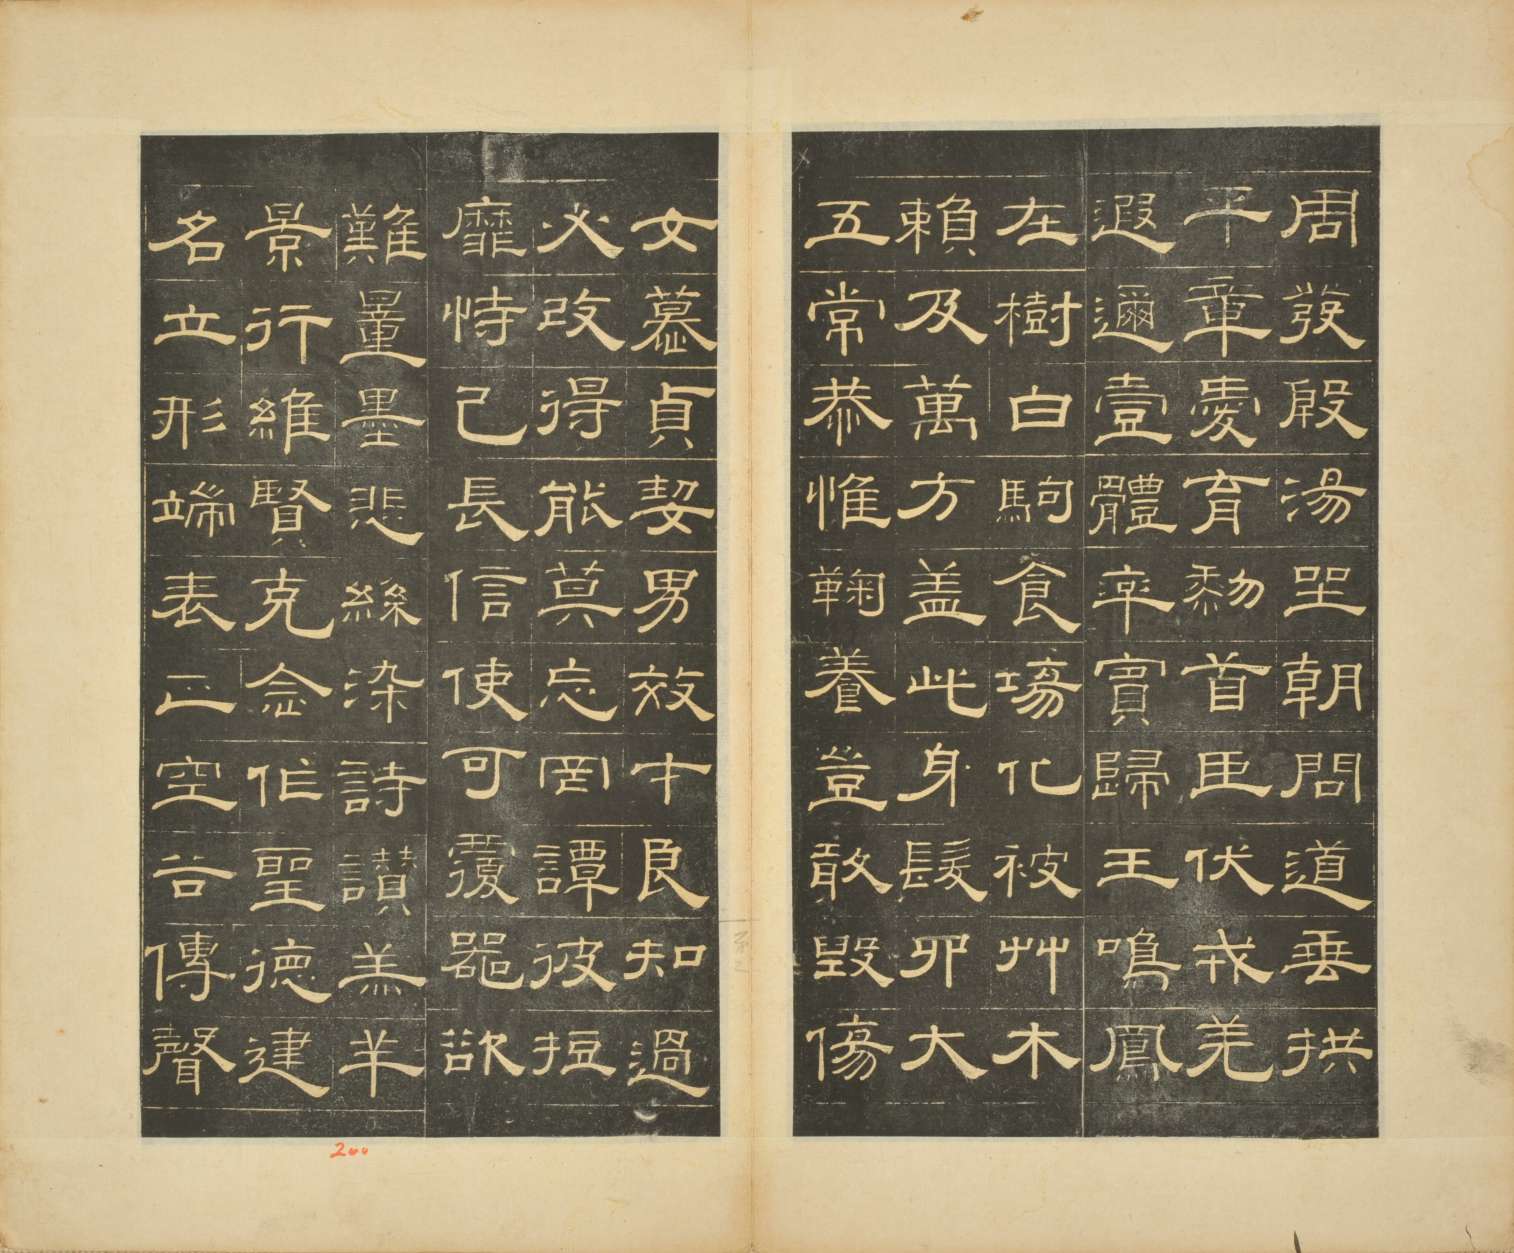 周發殷湯坐朝問道垂拱
平章愛育黎首臣伏戎羌
遐邇壹體率賓歸王鳴鳳
在樹白駒食場化被艸木
賴及萬方盖此身髮四大
五常恭惟鞠養豈敢毀傷
女慕貞絜男效才良知過
必改得能莫忘罔譚彼短
靡恃己長信使可覆器欲
難量墨悲絲染詩讚羔羊
景行維賢克念作聖德建
名立形端表正空谷傳聲
200